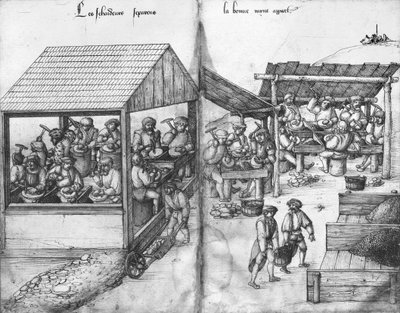 Les scheideurs separans la bonne myne apart